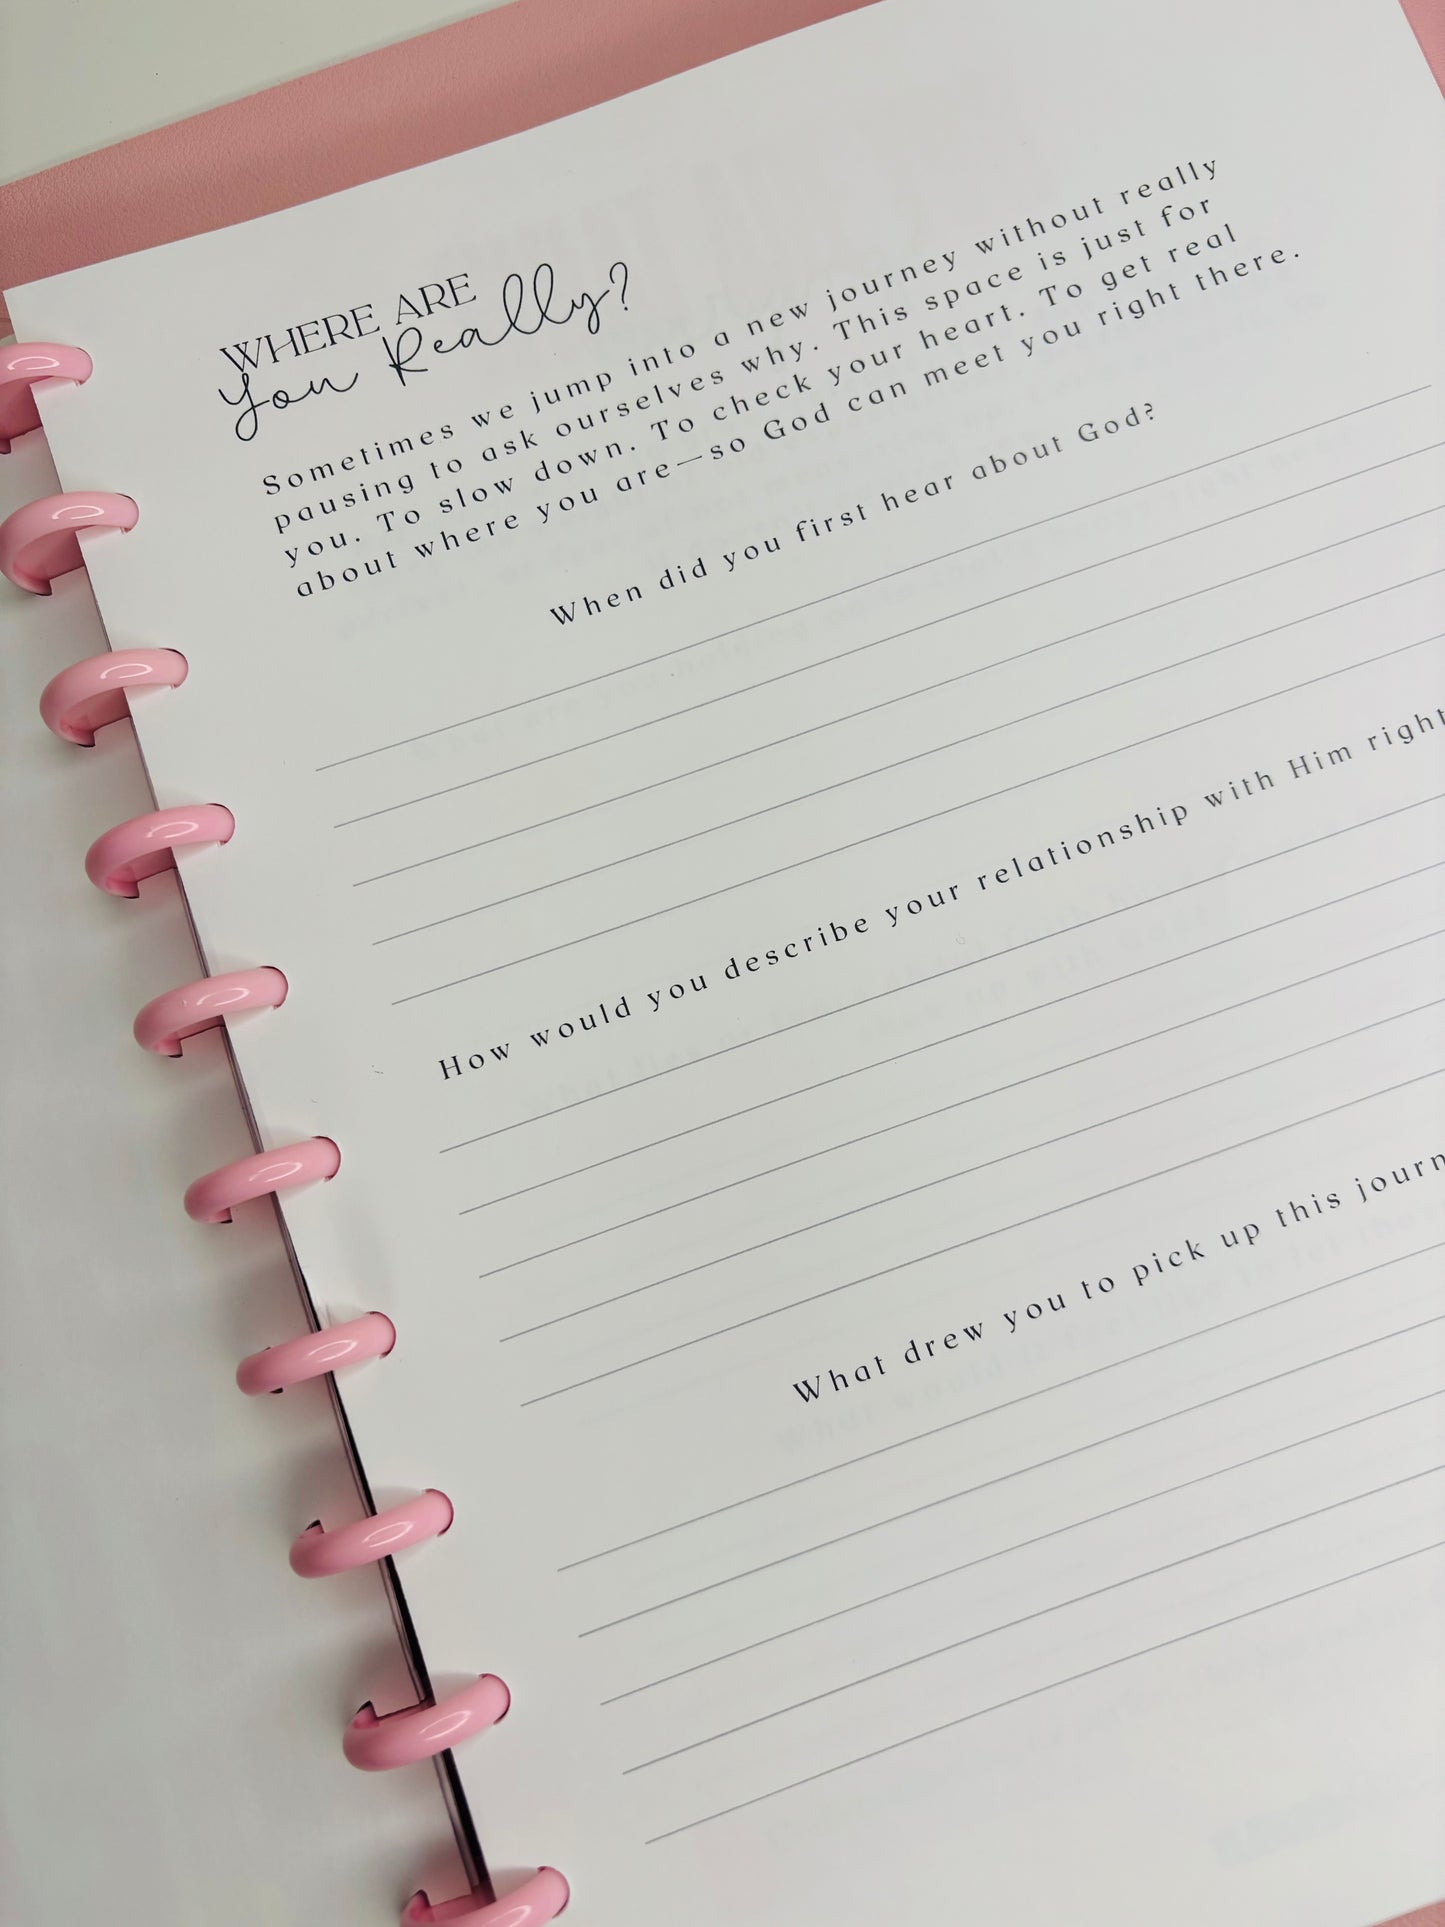 WHERE ARE
You Really?
Sometimes we jump into a new journey without really
pausing to ask ourselves why. This space is just for
you. To slow down. To check your heart. To get real
about where you are—so God can meet you right there.
When did you first hear about God?
How would you describe your relationship with Him right
What drew you to pick up this